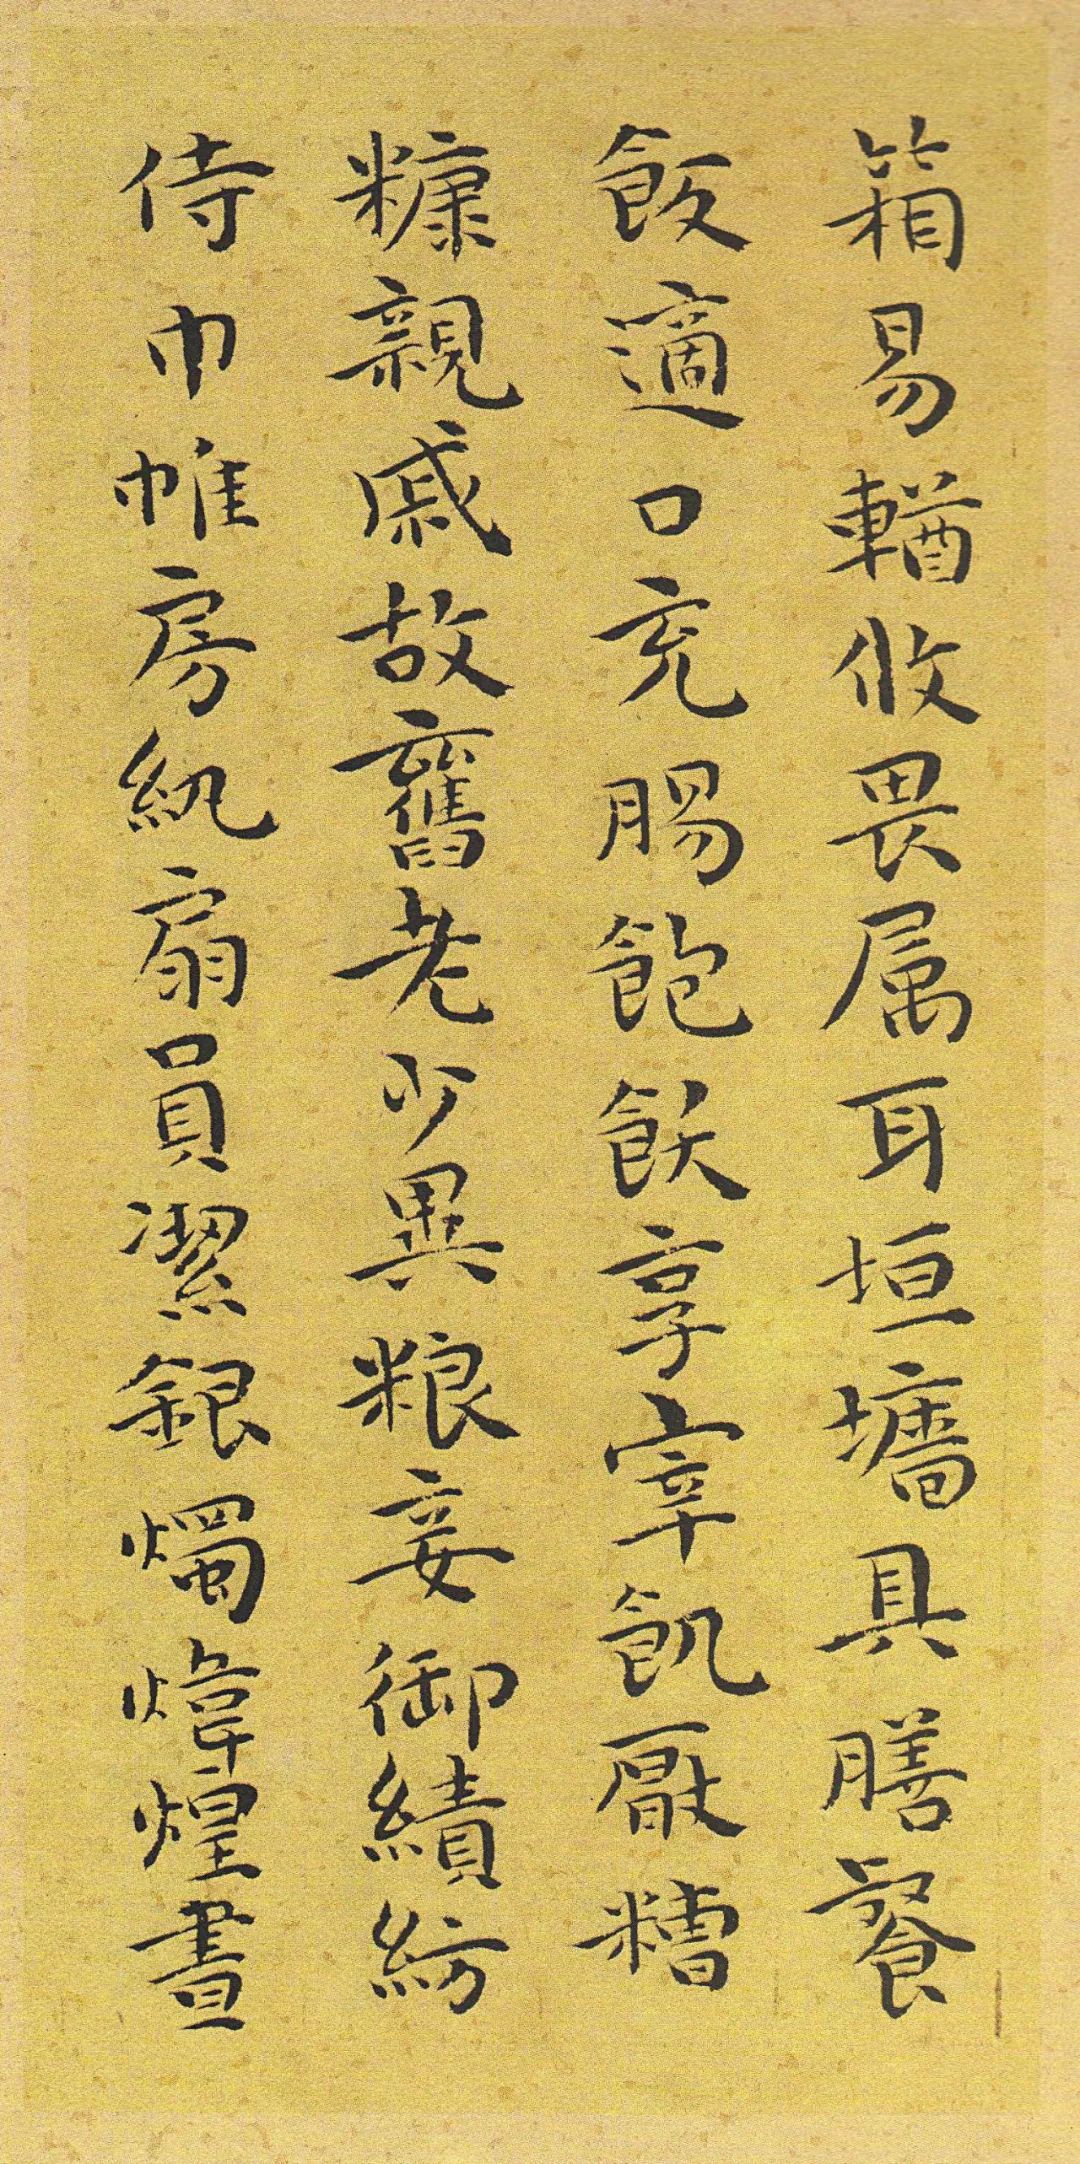 箱易輶攸畏属耳垣墻具膳餐
飯適口充腸飽飫享宰飢厭糟
糠親戚故舊老少異粮妾御績紡
侍巾帷房紈扇員潔銀燭煒煌晝